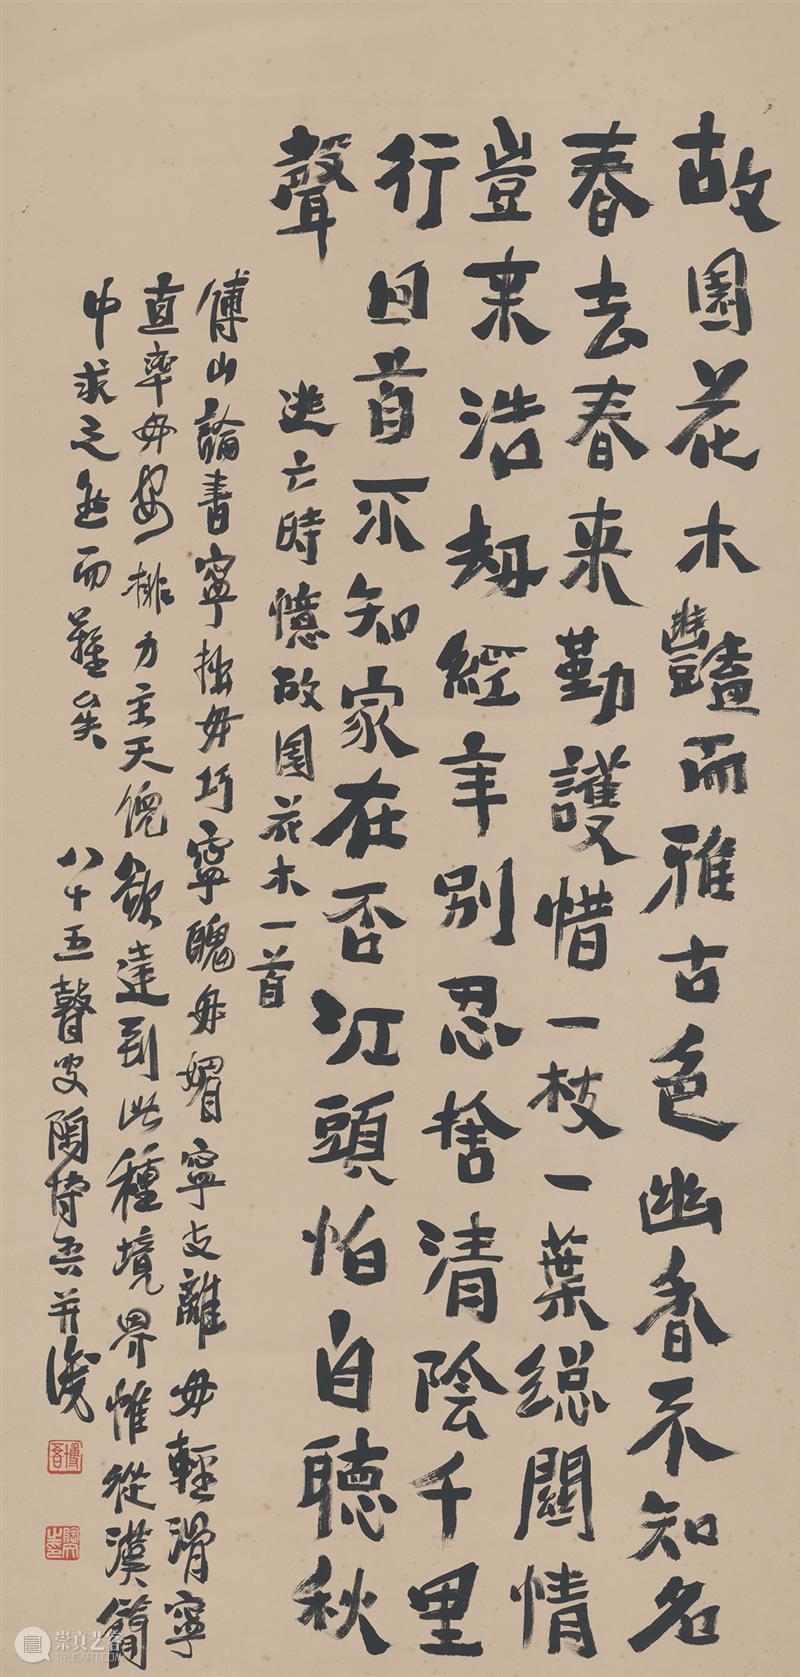 故園花木豔而雅古色幽香不知名
春去春来勤護惜一枝一葉總關情
豈来浩劫經年別忍捨清陰千里
行回首不知家在否江頭怕自聽秋
聲
逃亡時憶故園花木一首
傅山論書寧拙毋巧寧醜毋媚寧支離毋輕滑寧
直率毋安排力主天倪欲達到此種境界惟從漢簡
中求之然而難矣
八十五瞽叟陶博吾并識
博吾
崇真艺客